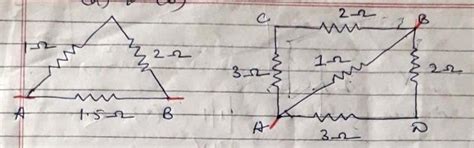 (a) & (b)
1Ω
2Ω
A
1.5Ω
B
C
2Ω
B
3Ω
1Ω
2Ω
A
3Ω
D